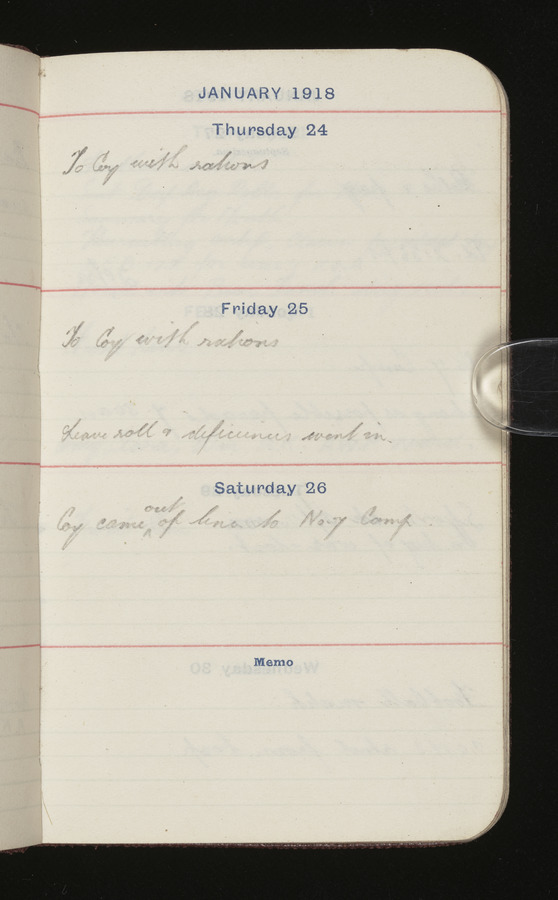 JANUARY 1918
Thursday 24
To Coy with rations
Friday 25
To Coy with rations
Leave roll & deficiences went in.
Saturday 26
Coy came out of line to No 7 Camp
Memo